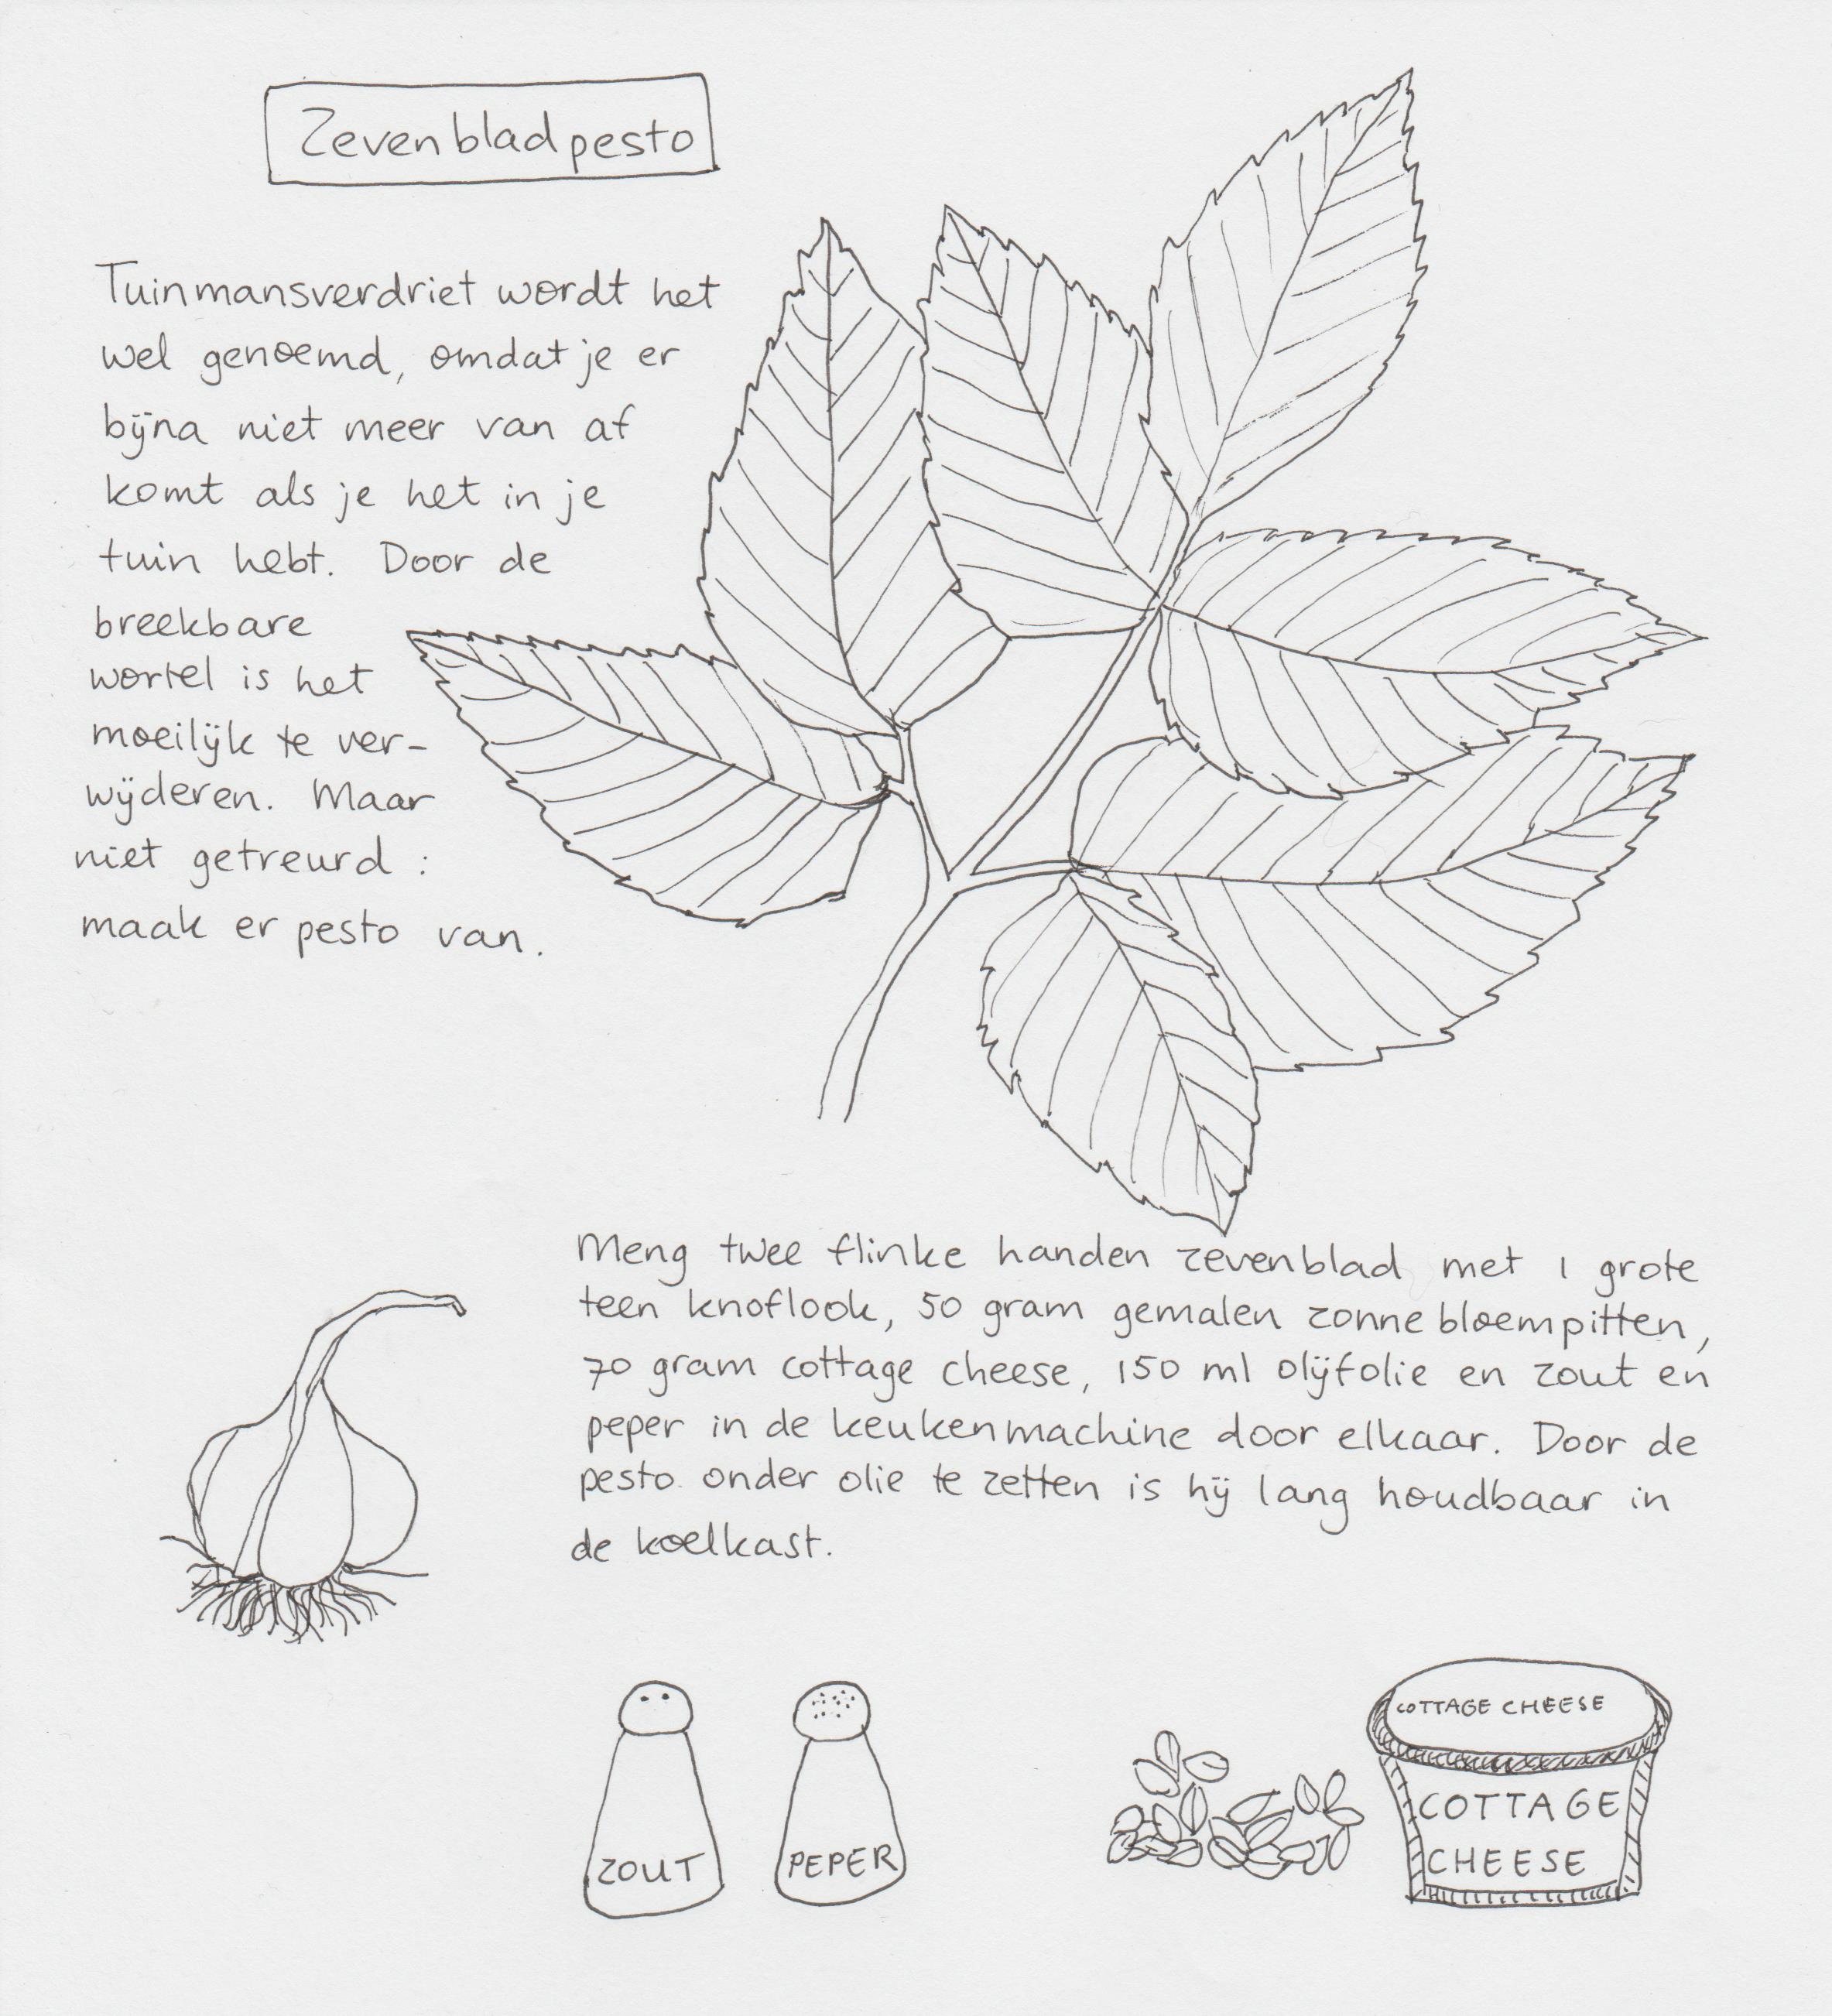 Zevenbladpesto
Tuinmansverdriet wordt het
wel genoemd, omdat je er
bijna niet meer van af
komt als je het in je
tuin hebt. Door de
breekbare
wortel is het
moeilijk te ver-
wijderen. Maar
niet getreurd :
maak er pesto van.
Meng twee flinke handen zevenblad met 1 grote
teen knoflook, 50 gram gemalen zonnebloempitten,
70 gram cottage cheese, 150 ml olijfolie en zout en
peper in de keukenmachine door elkaar. Door de
pesto onder olie te zetten is hij lang houdbaar in
de koelkast.
ZOUT
PEPER
COTTAGE CHEESE
COTTAGE
CHEESE